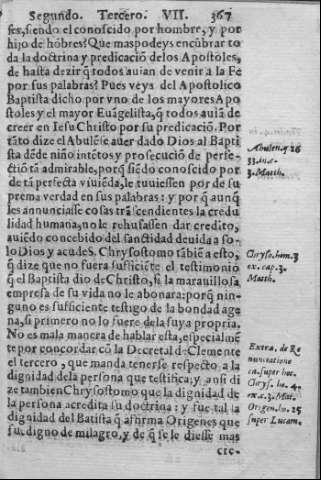 Segundo. Tercero. VII. 367
ses, siendo el conoscido por hombre, y por
hijo de hõbres? Que mas podeys encũbrar to
da la doctrina y predicaciõ de los Apostoles,
de hasta dezir q̃ todos auian de venir a la Fe
por sus palabras? Pues veys del Apostolico
Baptista dicho por vno de los mayores Apo
stoles y el mayor Euãgelista, q̃ todos auiã de
creer en Iesu Christo por su predicaciõ. Por
tãto dize el Abulẽse auer dado Dios al Bapti
sta desde niño intẽtos y prosecuciõ de perfe-
ctiõ tã admirable, porq̃ siẽdo conoscido por
de tã perfecta viuiẽda, le tuuiessen por de su
prema verdad en sus palabras: y por q̃ aunq̃
les annunciasse cosas trãscendientes la credu
lidad humana, no le rehusassen dar credito,
auiẽdo concebido del sanctidad deuida a so-
lo Dios y acudeS. Chrysostomo tãbiẽ a esto,
q̃ dize que no fuera sufficiẽte el testimonio
q̃ el Baptista dio de Christo, si la marauillosa
empresa de su vida no le abonara: porq̃ nin-
guno es sufficiente testigo de la bondad age
na, si primero no lo fuere de la suya propria.
No es mala manera de hablar esta, especialmẽ
te por concordar cõ la Decretal de Clemente
el tercero, que manda tenerse respecto a la
dignidad de la persona que testifica: y ansi di
ze tambien Chrysostomo que la dignidad de
la persona acredita su doctrina: y fue tal la
dignidad del Batista q̃ affirma Origenes que
fue digno de milagro, y de q̃ se le diesse mas
cre-
Abulen. q. 26
33. in. c.
3. Matth.
Chryso. hom. 3
ex. cap. 3.
Matth.
Extra. de Re
nunciatione
ca. super hoc.
Chrys. ho. 4.
ex. c. 3. Mat.
Origen. ho. 25
super Lucam.